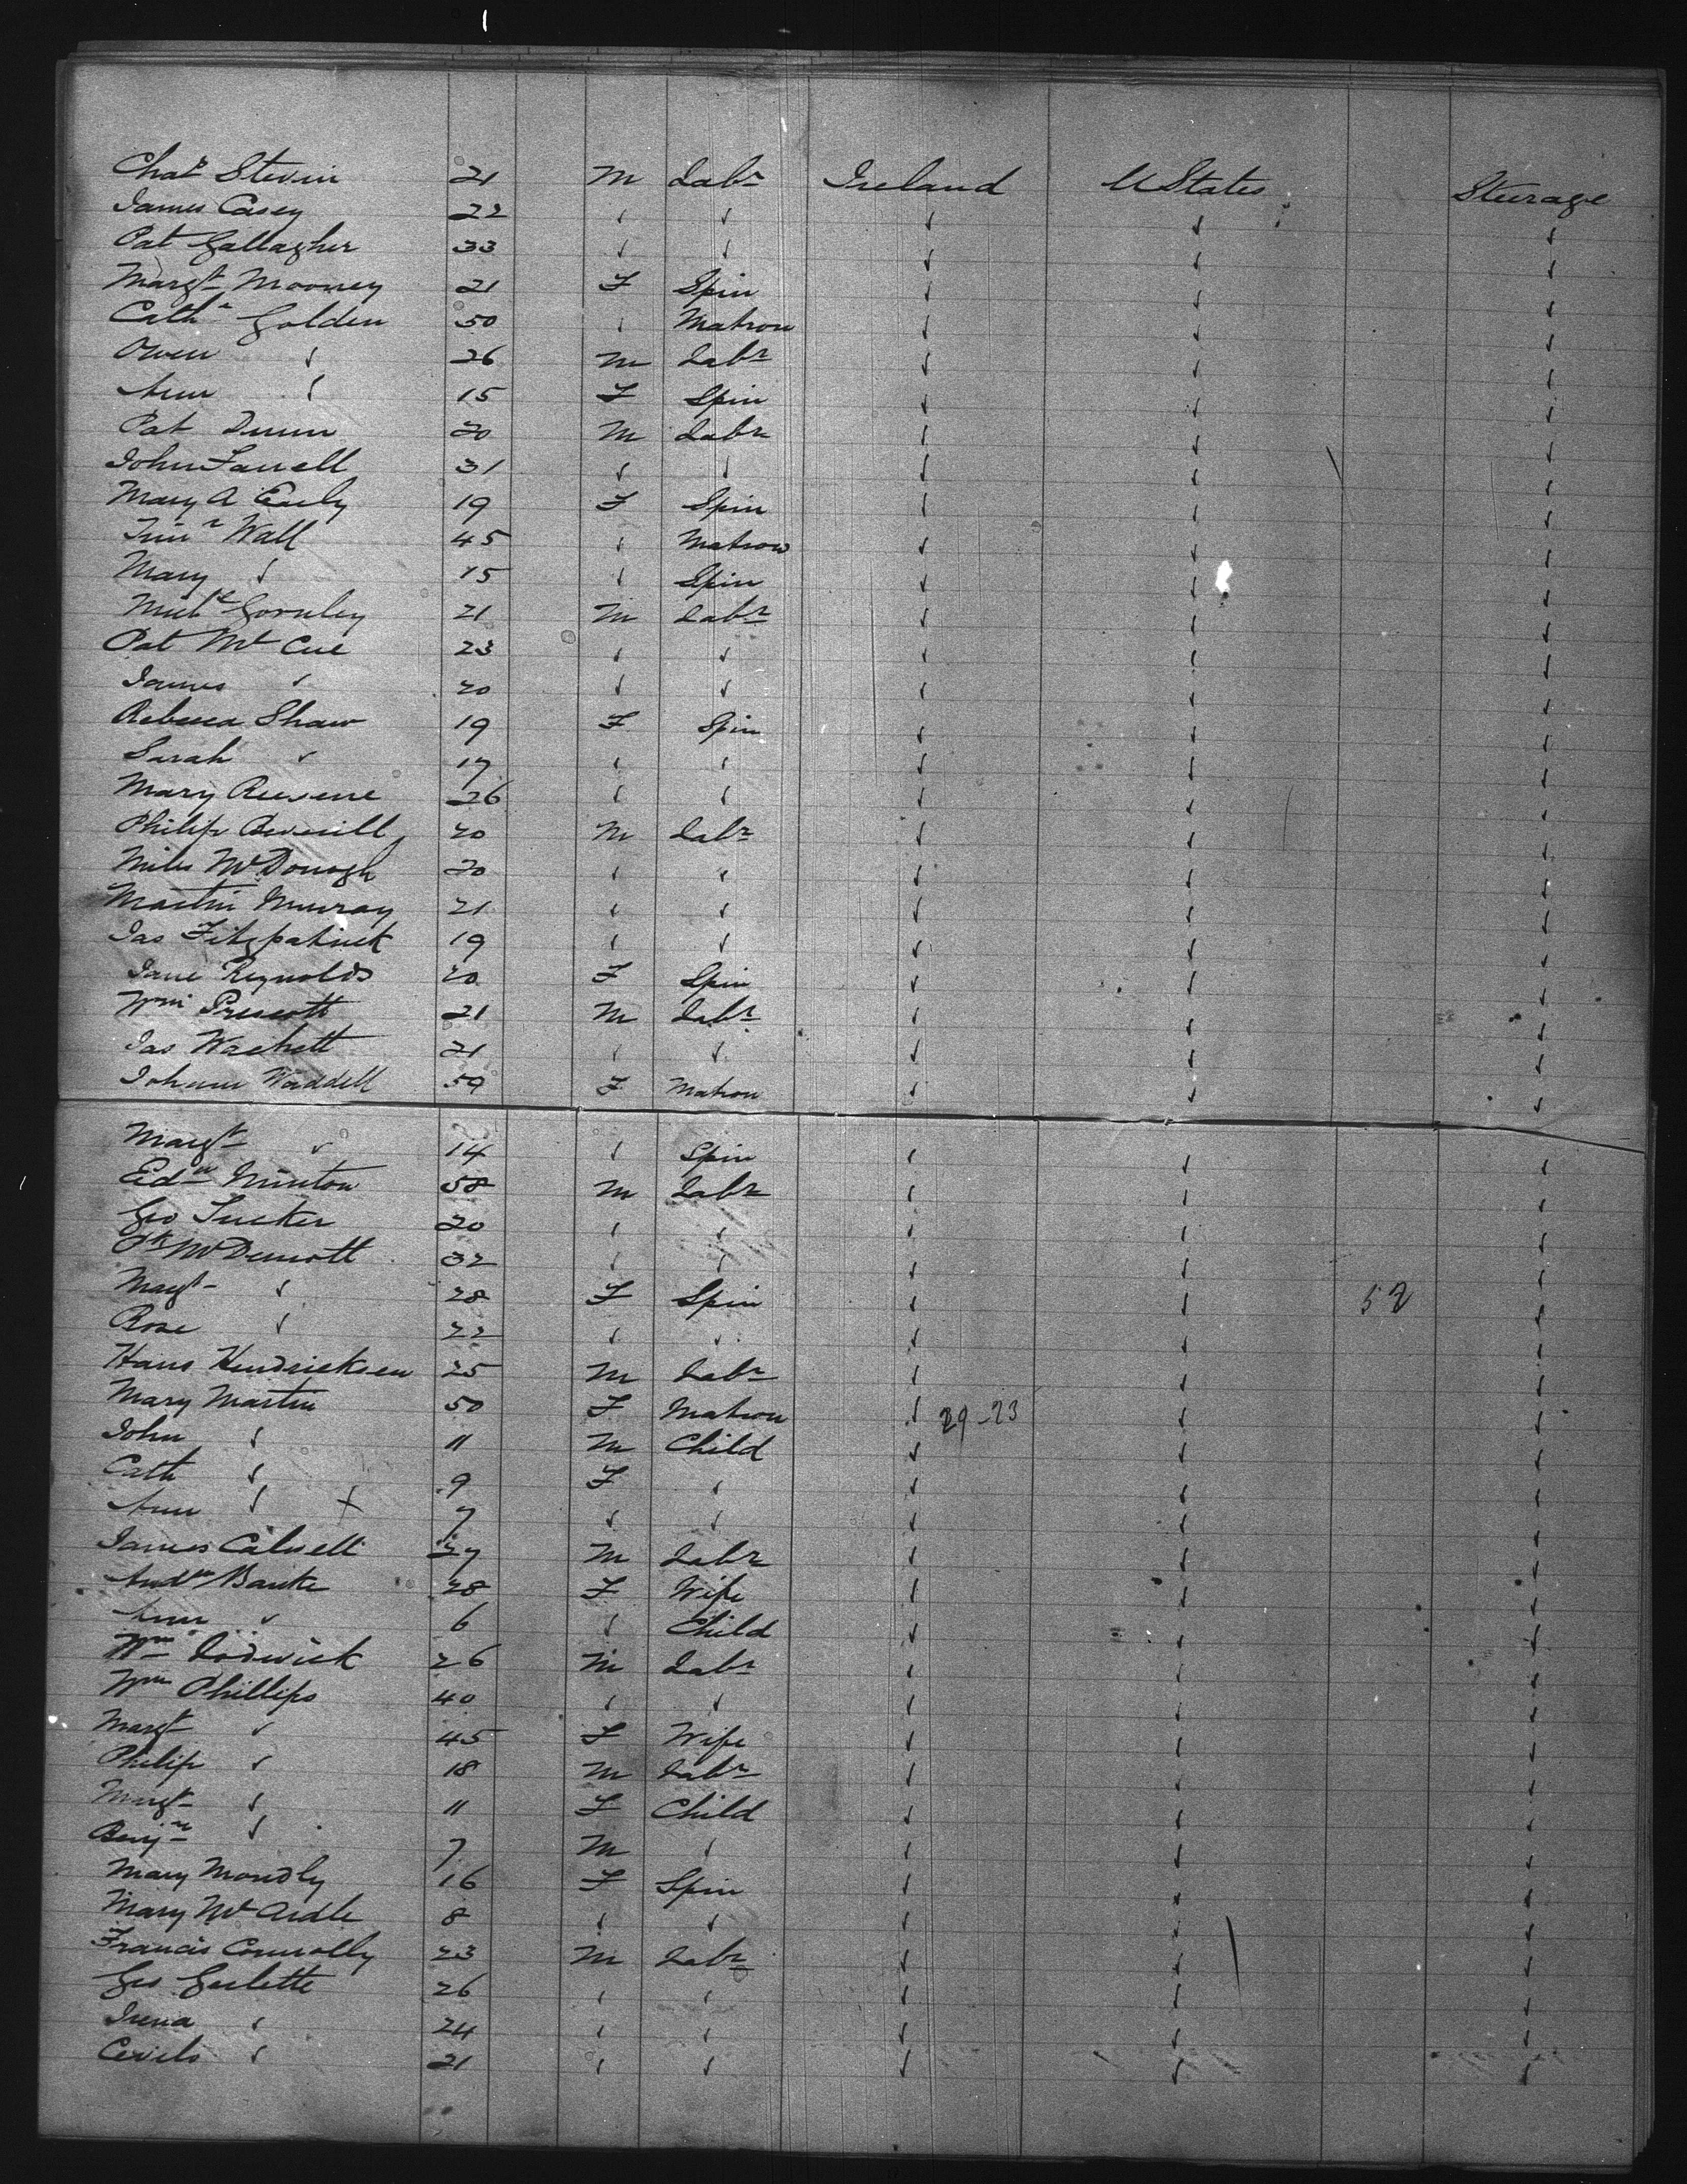 Chas Stevin 21 M Labr Ireland U States Steerage
James Casey 22 " " " " "
Pat Gallagher 33 " " " " "
Margt Mooney 21 F Spin " " "
Cathe Golden 50 " Matron " " "
Owen " 26 M Labr " " "
Ann " 15 F Spin " " "
Pat Dunn 20 M Labr " " "
John Farrell 31 " " " " "
Mary A Early 19 F Spin " " "
Wall 45 " Matron " " "
Mary " 15 " Spin " " "
Michl Gormley 21 M Labr " " "
Pat McCue 23 " " " " "
James " 20 " " " " "
Rebecca Shaw 19 F Spin " " "
Sarah " 17 " " " " "
Mary 26 " " " " "
Philip 20 M Labr " " "
Miles McDonogh 20 " " " " "
Martin Murray 21 " " " " "
Jas Fitzpatrick 19 " " " " "
Jane Reynolds 20 F Spin " " "
Wm Prescott 21 M Labr " " "
Jas Wachett 21 " " " " "
Johann Waddell 59 F Matron " " "
Margt " 14 " Spin " " "
Edw Minton 58 M Labr " " "
Geo Tucker 20 " " " " "
Pk McDermott 32 " " " " "
Margt " 28 F Spin " " 52 "
Rose " 22 " " " " "
Hans Hendricksen 25 M Labr " " "
Mary Martin 50 F Matron " 29-23 " "
John " 11 M Child " " "
Cath " 9 F " " " "
Ann " + 7 " " " " "
James Calwell 27 M Labr " " "
Andw Banke 28 F Wife " " "
Ann " 6 " Child " " "
Wm Lodwick 26 M Labr " " "
Wm Phillips 40 " " " " "
Margt " 45 F Wife " " "
Philip " 18 M Labr " " "
Margt " 11 F Child " " "
Benjn " 7 M " " " "
Mary Mondly 16 F Spin " " "
Mary McArdle 8 " " " " "
Francis Connolly 23 M Labr " " "
Geo Gerlette 26 " " " " "
Irena " 24 " " " " "
" 21 " " " " "